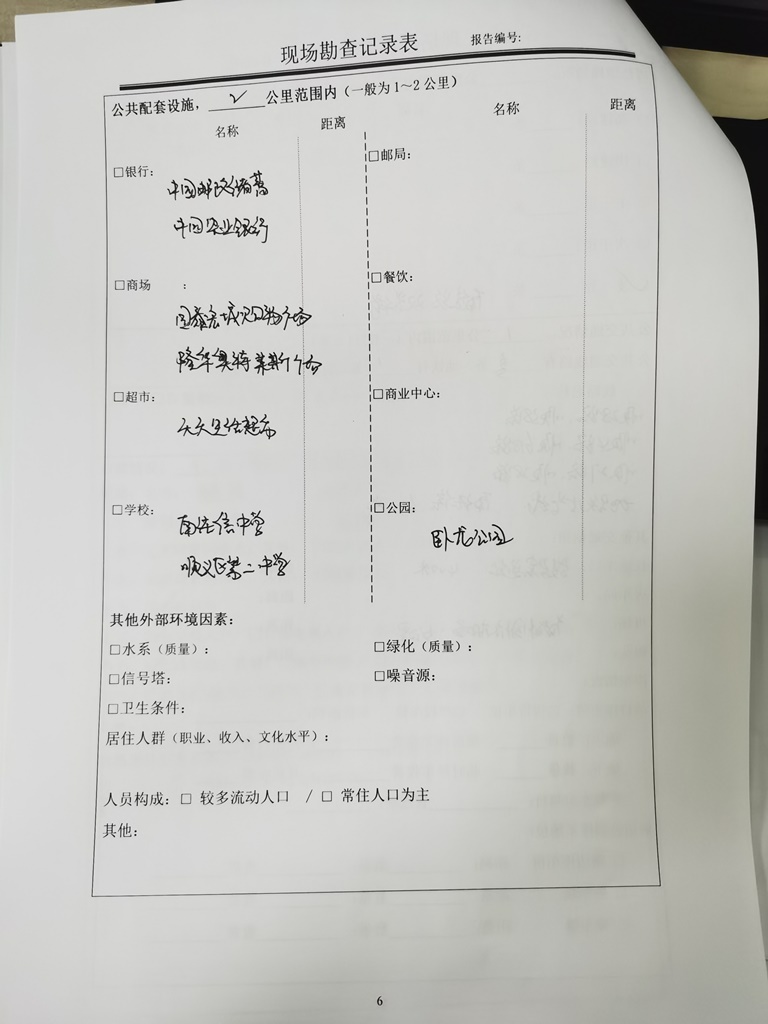 现场勘查记录表
报告编号:
公共配套设施, 2 公里范围内（一般为1～2公里）
名称 距离 名称 距离
□银行:
中国邮政储蓄
中国农业银行
□邮局:
□商场 :
国泰宏城购物广场
隆华奥特莱斯广场
□餐饮:
□超市:
天天生活超市
□商业中心:
□学校:
南法信中学
顺义区第二中学
□公园:
卧龙公园
其他外部环境因素:
□水系（质量）: □绿化（质量）:
□信号塔: □噪音源:
□卫生条件:
居住人群（职业、收入、文化水平）:
人员构成: □ 较多流动人口 / □ 常住人口为主
其他:
6